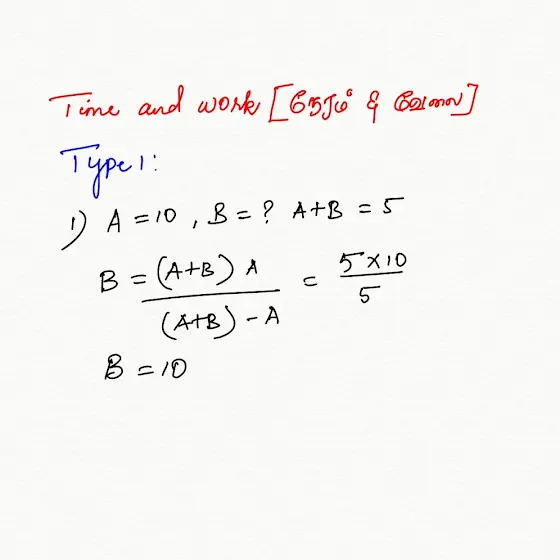 Time and work [நேரம் & வேலை]
Type 1:
1) A = 10 , B = ? A+B = 5
B = (A+B) A / (A+B) - A = 5 x 10 / 5
B = 10